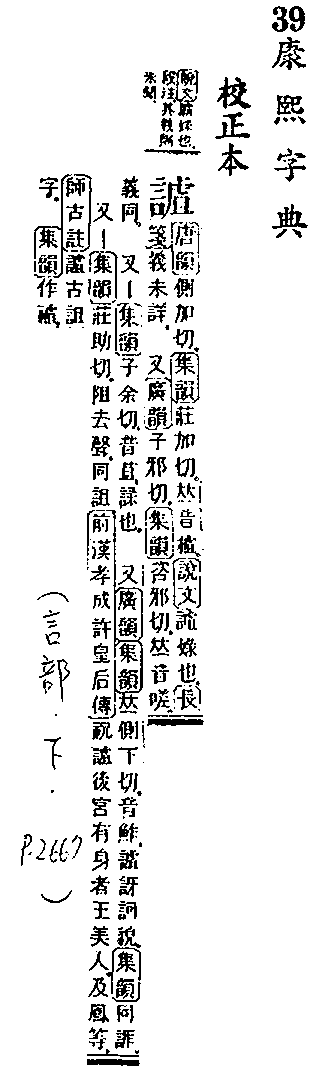 39康熙字典
校正本
說文謯娽也
段注其義所
未聞
謯
唐韻側加切集韻莊加切𠀤音樝說文謯娽也長
箋義未詳 又廣韻子邪切集韻咨邪切𠀤音嗟
義同 又丨集韻子余切音苴也 又廣韻集韻𠀤側下切音鮓謯訝訶貌集韻同
又丨集韻莊助切阻去聲同詛前漢孝成許皇后傳祝謯後宮有身者王美人及鳳等
師古註謯古詛
字 集韻作
(言部.下.
P.2667)